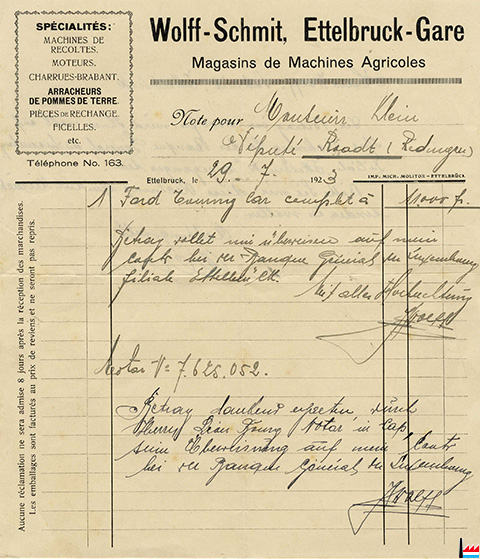 SPÉCIALITÉS:
MACHINES DE
RÉCOLTES.
MOTEURS.
CHARRUES-BRABANT.
ARRACHEURS
DE POMMES DE TERRE.
PIÈCES DE RECHANGE
FICELLES.
etc.
Téléphone No. 163.
Wolff-Schmit, Ettelbruck-Gare
Magasins de Machines Agricoles
Note pour Monsieur Klein
Député Roodt (Redingen)
Ettelbruck, le 29. 7. 1923
IMP. MICH. MOLITOR-ETTELBRÜCK
1 Ford Touring Car complet à 11000 fr.
Betrag wollet mir überweisen auf mein
bei der Banque Général du Luxembourg
filiale
Mit aller Hochachtung
JWolff
Motor No 7.625.052.
Betrag dankend erhalten durch
Herry Léon Notar in Cap,
seine Überweisung auf mein
bei der Banque Général du Luxembourg
JWolff
Aucune réclamation ne sera admise 8 jours après la réception des marchandises.
Les emballages sont facturés au prix de reviens et ne seront pas repris.